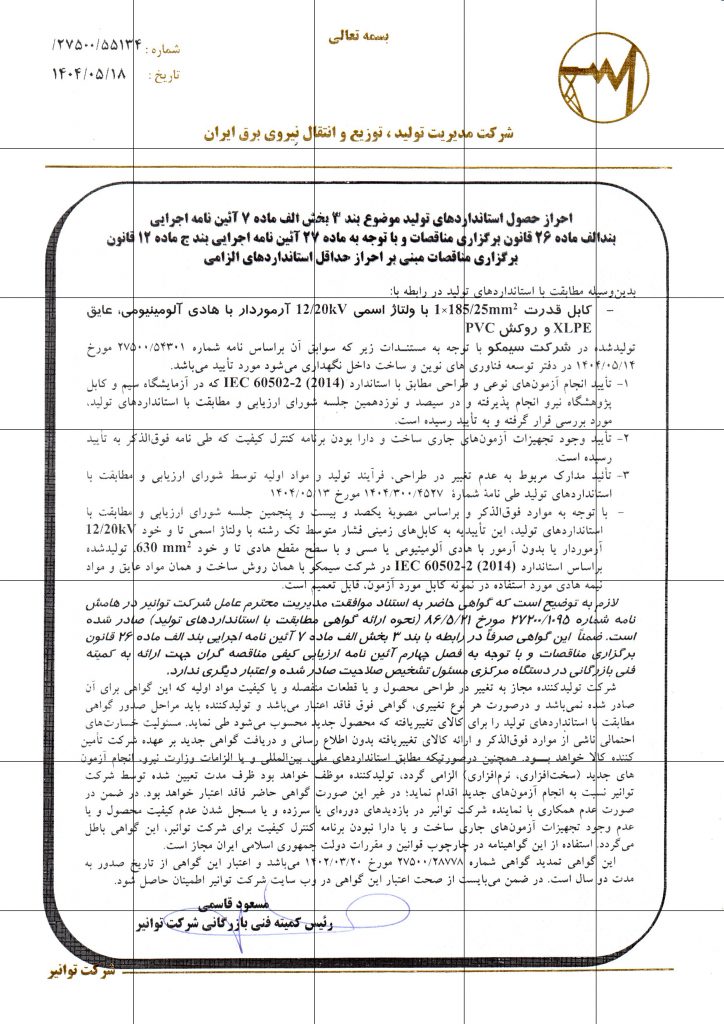 بسمه تعالی
شماره : ۲۷۵۰۰/۵۵۱۳۴/
تاریخ : ۱۴۰۴/۰۵/۱۸
شرکت مدیریت تولید ، توزیع و انتقال نیروی برق ایران
احراز حصول استانداردهای تولید موضوع بند ۳ بخش الف ماده ۷ آئین نامه اجرایی
بندالف ماده ۲۶ قانون برگزاری مناقصات و با توجه به ماده ۲۷ آئین نامه اجرایی بند ج ماده ۱۲ قانون
برگزاری مناقصات مبنی بر احراز حداقل استانداردهای الزامی
بدین‌وسیله مطابقت با استانداردهای تولید در رابطه با:
- کابل قدرت 1×185/25mm² با ولتاژ اسمی 12/20kV آرموردار با هادی آلومینیومی، عایق
XLPE و روکش PVC
تولیدشده در شرکت سیمکو با توجه به مستندات زیر که سوابق آن براساس نامه شماره ۲۷۵۰۰/۵۴۳۰۱ مورخ
۱۴۰۴/۰۵/۱۴ در دفتر توسعه فناوری های نوین و ساخت داخل نگهداری می‌شود مورد تأیید می‌باشد.
۱- تأیید انجام آزمون‌های نوعی و طراحی مطابق با استاندارد IEC 60502-2 (2014) که در آزمایشگاه سیم و کابل
پژوهشگاه نیرو انجام پذیرفته و در سیصد و نوزدهمین جلسه شورای ارزیابی و مطابقت با استانداردهای تولید،
مورد بررسی قرار گرفته و به تأیید رسیده است.
۲- تأیید وجود تجهیزات آزمون‌های جاری ساخت و دارا بودن برنامه کنترل کیفیت که طی نامه فوق‌الذکر به تأیید
رسیده است.
۳- تأئید مدارک مربوط به عدم تغییر در طراحی، فرآیند تولید و مواد اولیه توسط شورای ارزیابی و مطابقت با
استانداردهای تولید طی نامۀ شمارۀ ۱۴۰۴/۳۰۰/۴۵۲۷ مورخ ۱۴۰۴/۰۵/۱۳
- با توجه به موارد فوق‌الذکر و براساس مصوبۀ یکصد و بیست و پنجمین جلسه شورای ارزیابی و مطابقت با
استانداردهای تولید، این تأییدیه به کابل‌های زمینی فشار متوسط تک رشته با ولتاژ اسمی تا و خود 12/20kV
آرموردار یا بدون آرمور با هادی آلومینیومی یا مسی و با سطح مقطع هادی تا و خود 630 mm²، تولیدشده
براساس استاندارد IEC 60502-2 (2014) در شرکت سیمکو با همان روش ساخت و همان مواد عایق و مواد
نیمه هادی مورد استفاده در نمونه کابل مورد آزمون، قابل تعمیم است.
لازم به توضیح است که گواهی حاضر به استناد موافقت مدیریت محترم عامل شرکت توانیر در هامش
نامه شماره ۲۷۲۰۰/۱۰۹۵ مورخ ۸۶/۵/۲۱ (نحوه ارائه گواهی مطابقت با استانداردهای تولید) صادر شده
است. ضمناً این گواهی صرفاً در رابطه با بند ۳ بخش الف ماده ۷ آئین نامه اجرایی بند الف ماده ۲۶ قانون
برگزاری مناقصات و با توجه به فصل چهارم آئین نامه ارزیابی کیفی مناقصه گران جهت ارائه به کمیته
فنی بازرگانی در دستگاه مرکزی مسئول تشخیص صلاحیت صادر شده و اعتبار دیگری ندارد.
شرکت تولیدکننده مجاز به تغییر در طراحی محصول و یا قطعات منفصله و یا کیفیت مواد اولیه که این گواهی برای آن
صادر شده نمی‌باشد و درصورت هر نوع تغییری، گواهی فوق فاقد اعتبار می‌باشد و تولیدکننده باید مراحل صدور گواهی
مطابقت با استانداردهای تولید را برای کالای تغییریافته که محصول جدید محسوب می‌شود طی نماید. مسئولیت خسارت‌های
احتمالی ناشی از موارد فوق‌الذکر و ارائه کالای تغییریافته بدون اطلاع رسانی و دریافت گواهی جدید بر عهده شرکت تأمین
کننده کالا خواهد بود. همچنین درصورتیکه مطابق استانداردهای ملی، بین‌المللی و یا الزامات وزارت نیرو، انجام آزمون
های جدید (سخت‌افزاری، نرم‌افزاری) الزامی گردد، تولیدکننده موظف خواهد بود ظرف مدت تعیین شده توسط شرکت
توانیر نسبت به انجام آزمون‌های جدید اقدام نماید؛ در غیر این صورت گواهی حاضر فاقد اعتبار خواهد بود. در ضمن در
صورت عدم همکاری با نماینده شرکت توانیر در بازدیدهای دوره‌ای یا سرزده و یا مسجل شدن عدم کیفیت محصول و یا
عدم وجود تجهیزات آزمون‌های جاری ساخت و یا دارا نبودن برنامه کنترل کیفیت برای شرکت توانیر، این گواهی باطل
می‌گردد. استفاده از این گواهینامه در چارچوب قوانین و مقررات دولت جمهوری اسلامی ایران مجاز است.
این گواهی تمدید گواهی شماره ۲۷۵۰۰/۲۸۷۷۸ مورخ ۱۴۰۲/۰۳/۲۰ می‌باشد و اعتبار این گواهی از تاریخ صدور به
مدت دو سال است. در ضمن می‌بایست از صحت اعتبار این گواهی در وب سایت شرکت توانیر اطمینان حاصل شود.
مسعود قاسمی
رئیس کمیته فنی بازرگانی شرکت توانیر
شرکت توانیر